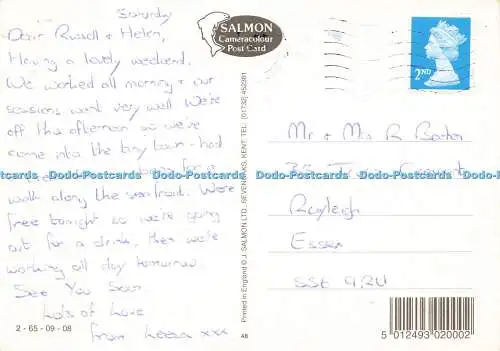 Saturday
Dear Russell & Helen,
Having a lovely weekend.
We worked all morning & our
sessions went very well. We're
off this afternoon so we're
come into the tiny town - had
for a
walk along the sea front. We're
free tonight so we're going
out for a drink, then we're
working all day tomorrow.
See You Soon
Lots of Love
from xxx
2-65-09-08
SALMON
Cameracolour
Post Card
Printed in England © J. SALMON LTD., SEVENOAKS, KENT. TEL: (01732) 452381
48
2ND
Mr & Mrs R Barton
Rayleigh
Essex
SS6 9RU
5 012493 020002
Dodo-Postcards Dodo-Postcards Dodo-Postcards Dodo-Postcards